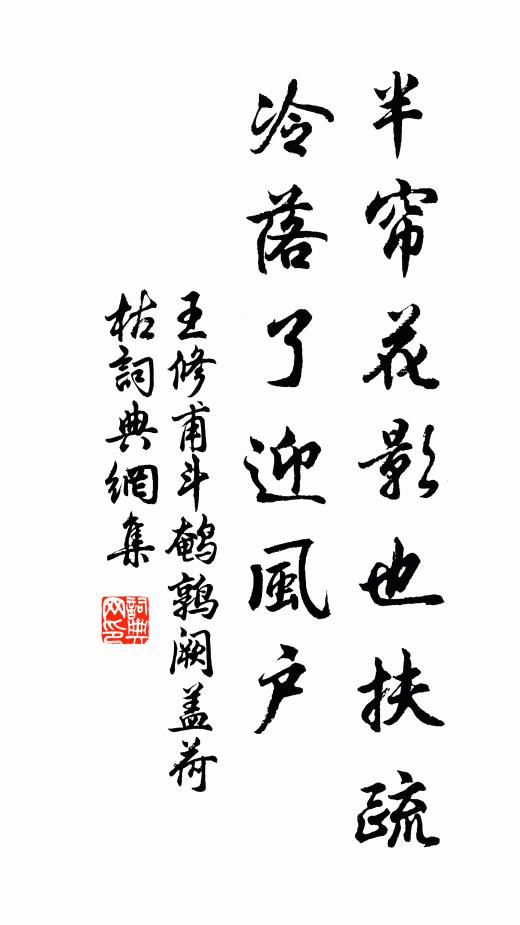 半帘花影也扶疏
冷落了迎風户
王修甫斗鹌鹑阙盖荷
枯詞典網集
詞典
网印